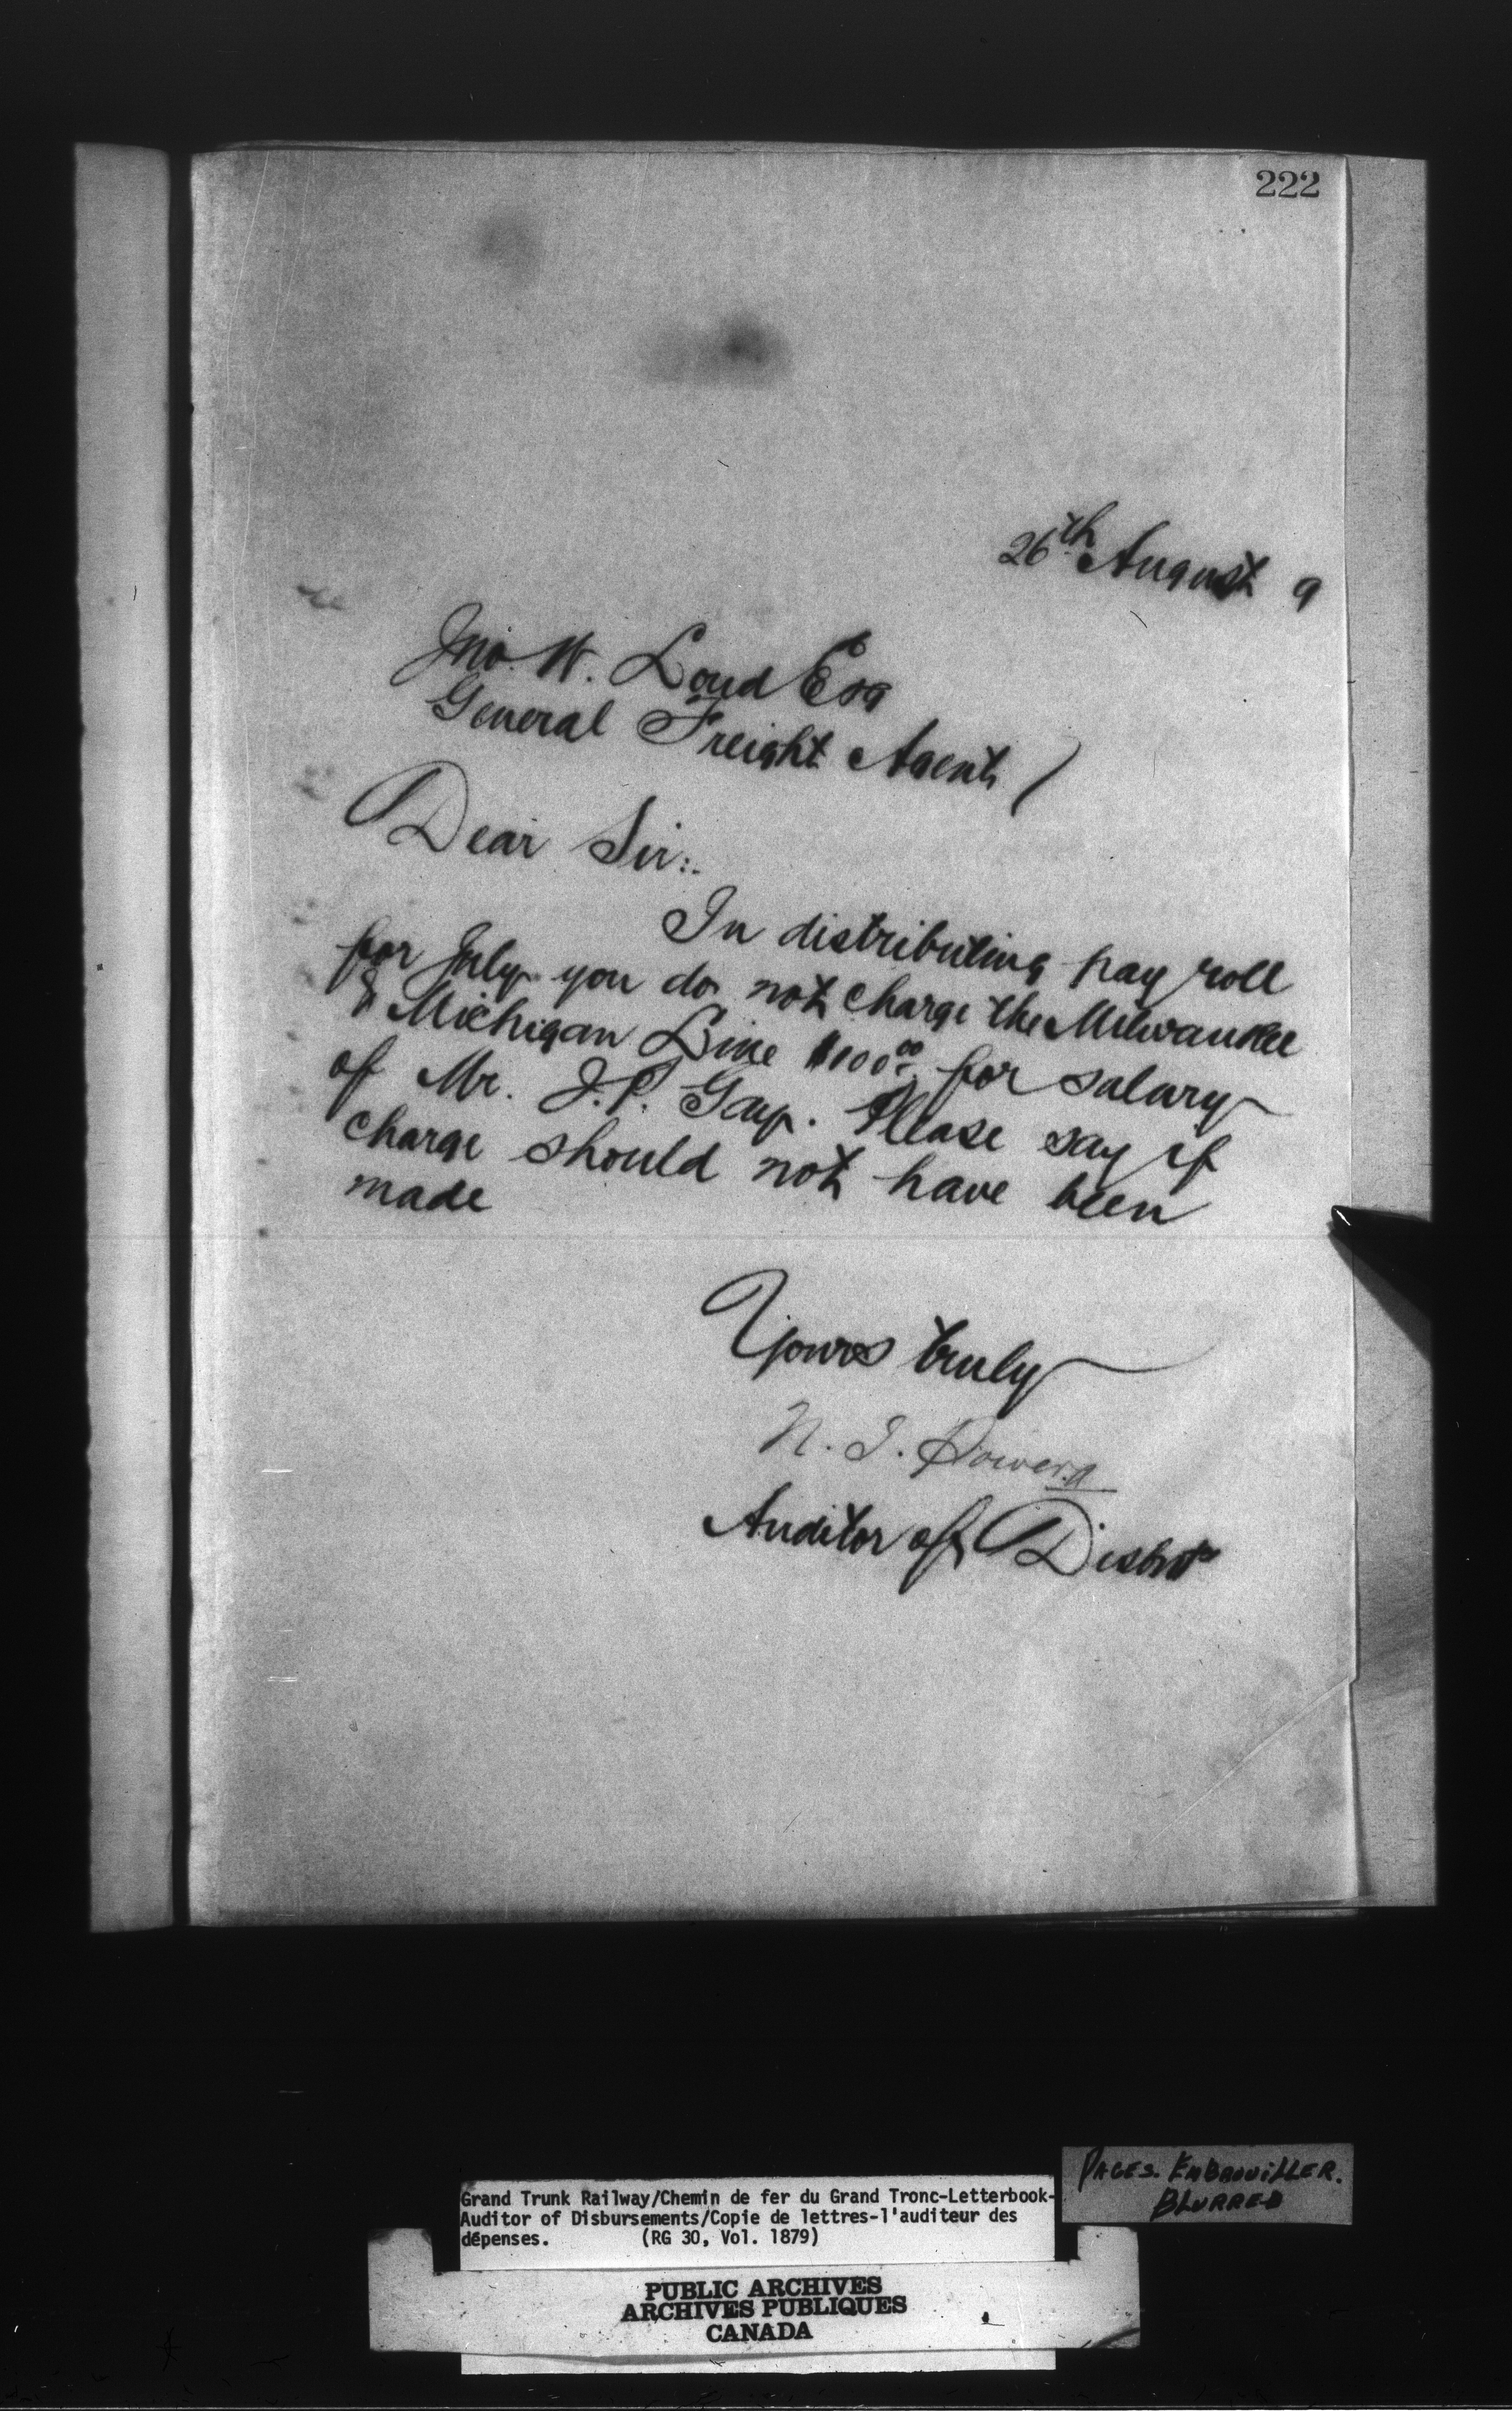 222
26th August 9
Jno. W. Loud Esq
General Freight Agent
Dear Sir:.
In distributing pay roll
for July you do not charge the Milwaukee
& Michigan Line $100.00 for salary
of Mr. J.P. Gay. Please say if
charge should not have been
made
Yours truly
N. J. Power
Auditor of Disbts
PAGES. EMBROUILLER.
BLURRED
Grand Trunk Railway/Chemin de fer du Grand Tronc-Letterbook-
Auditor of Disbursements/Copie de lettres-l'auditeur des
dépenses. (RG 30, Vol. 1879)
PUBLIC ARCHIVES
ARCHIVES PUBLIQUES
CANADA